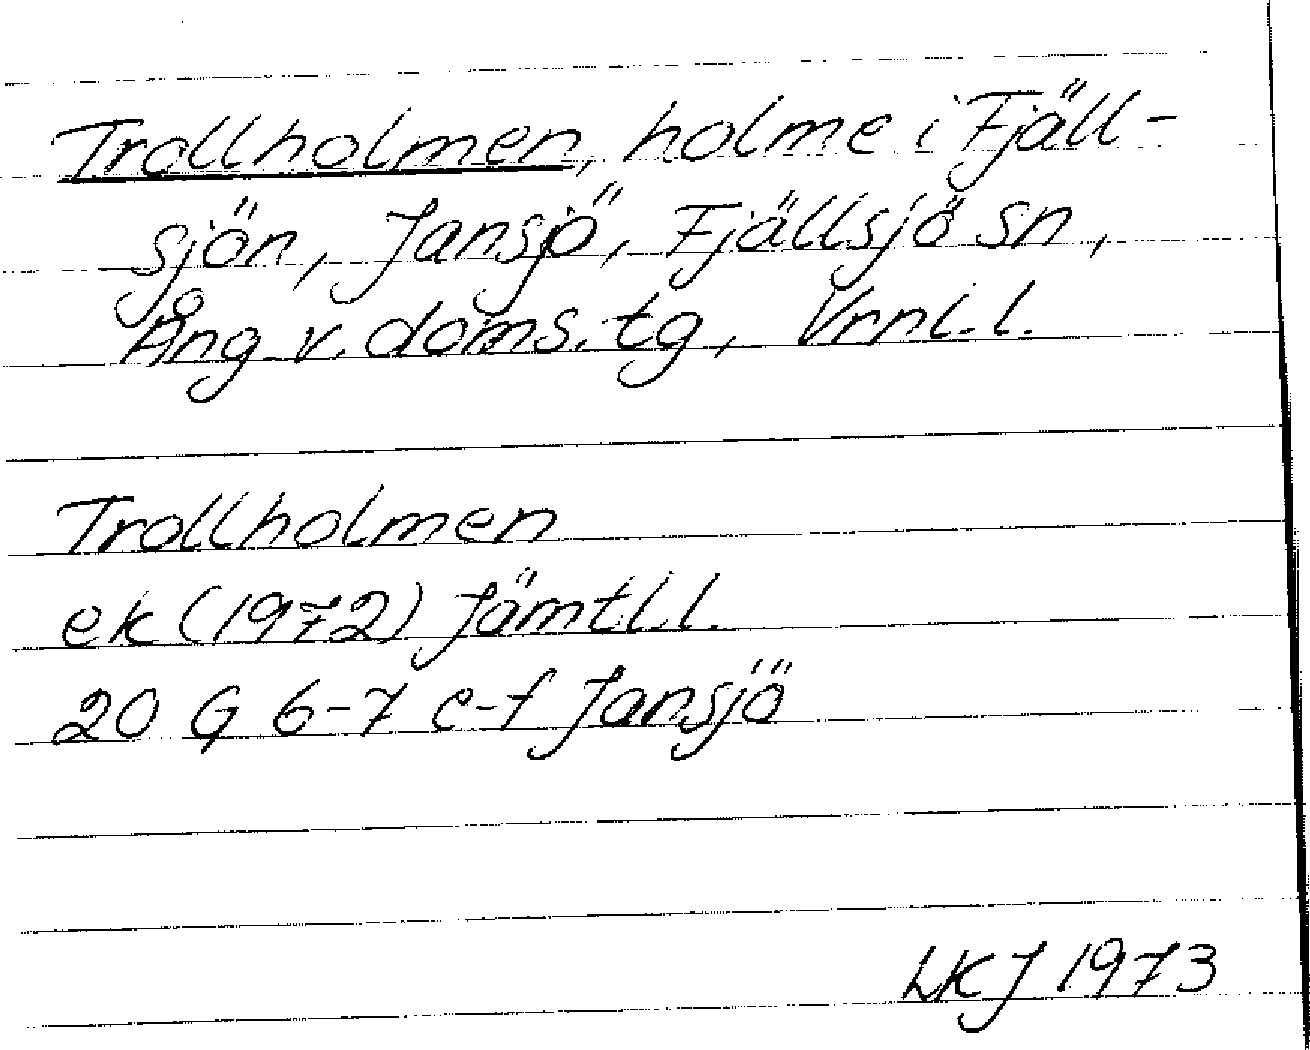 Trollholmen, holme i Fjäll-
sjön, Jansjö, Fjällsjö sn,
Ång. v. doms. tg, Vrnl. l.
Trollholmen
ek (1972) Jämtl. l.
20 G 6-7 e-f Jansjö
LKJ 1973